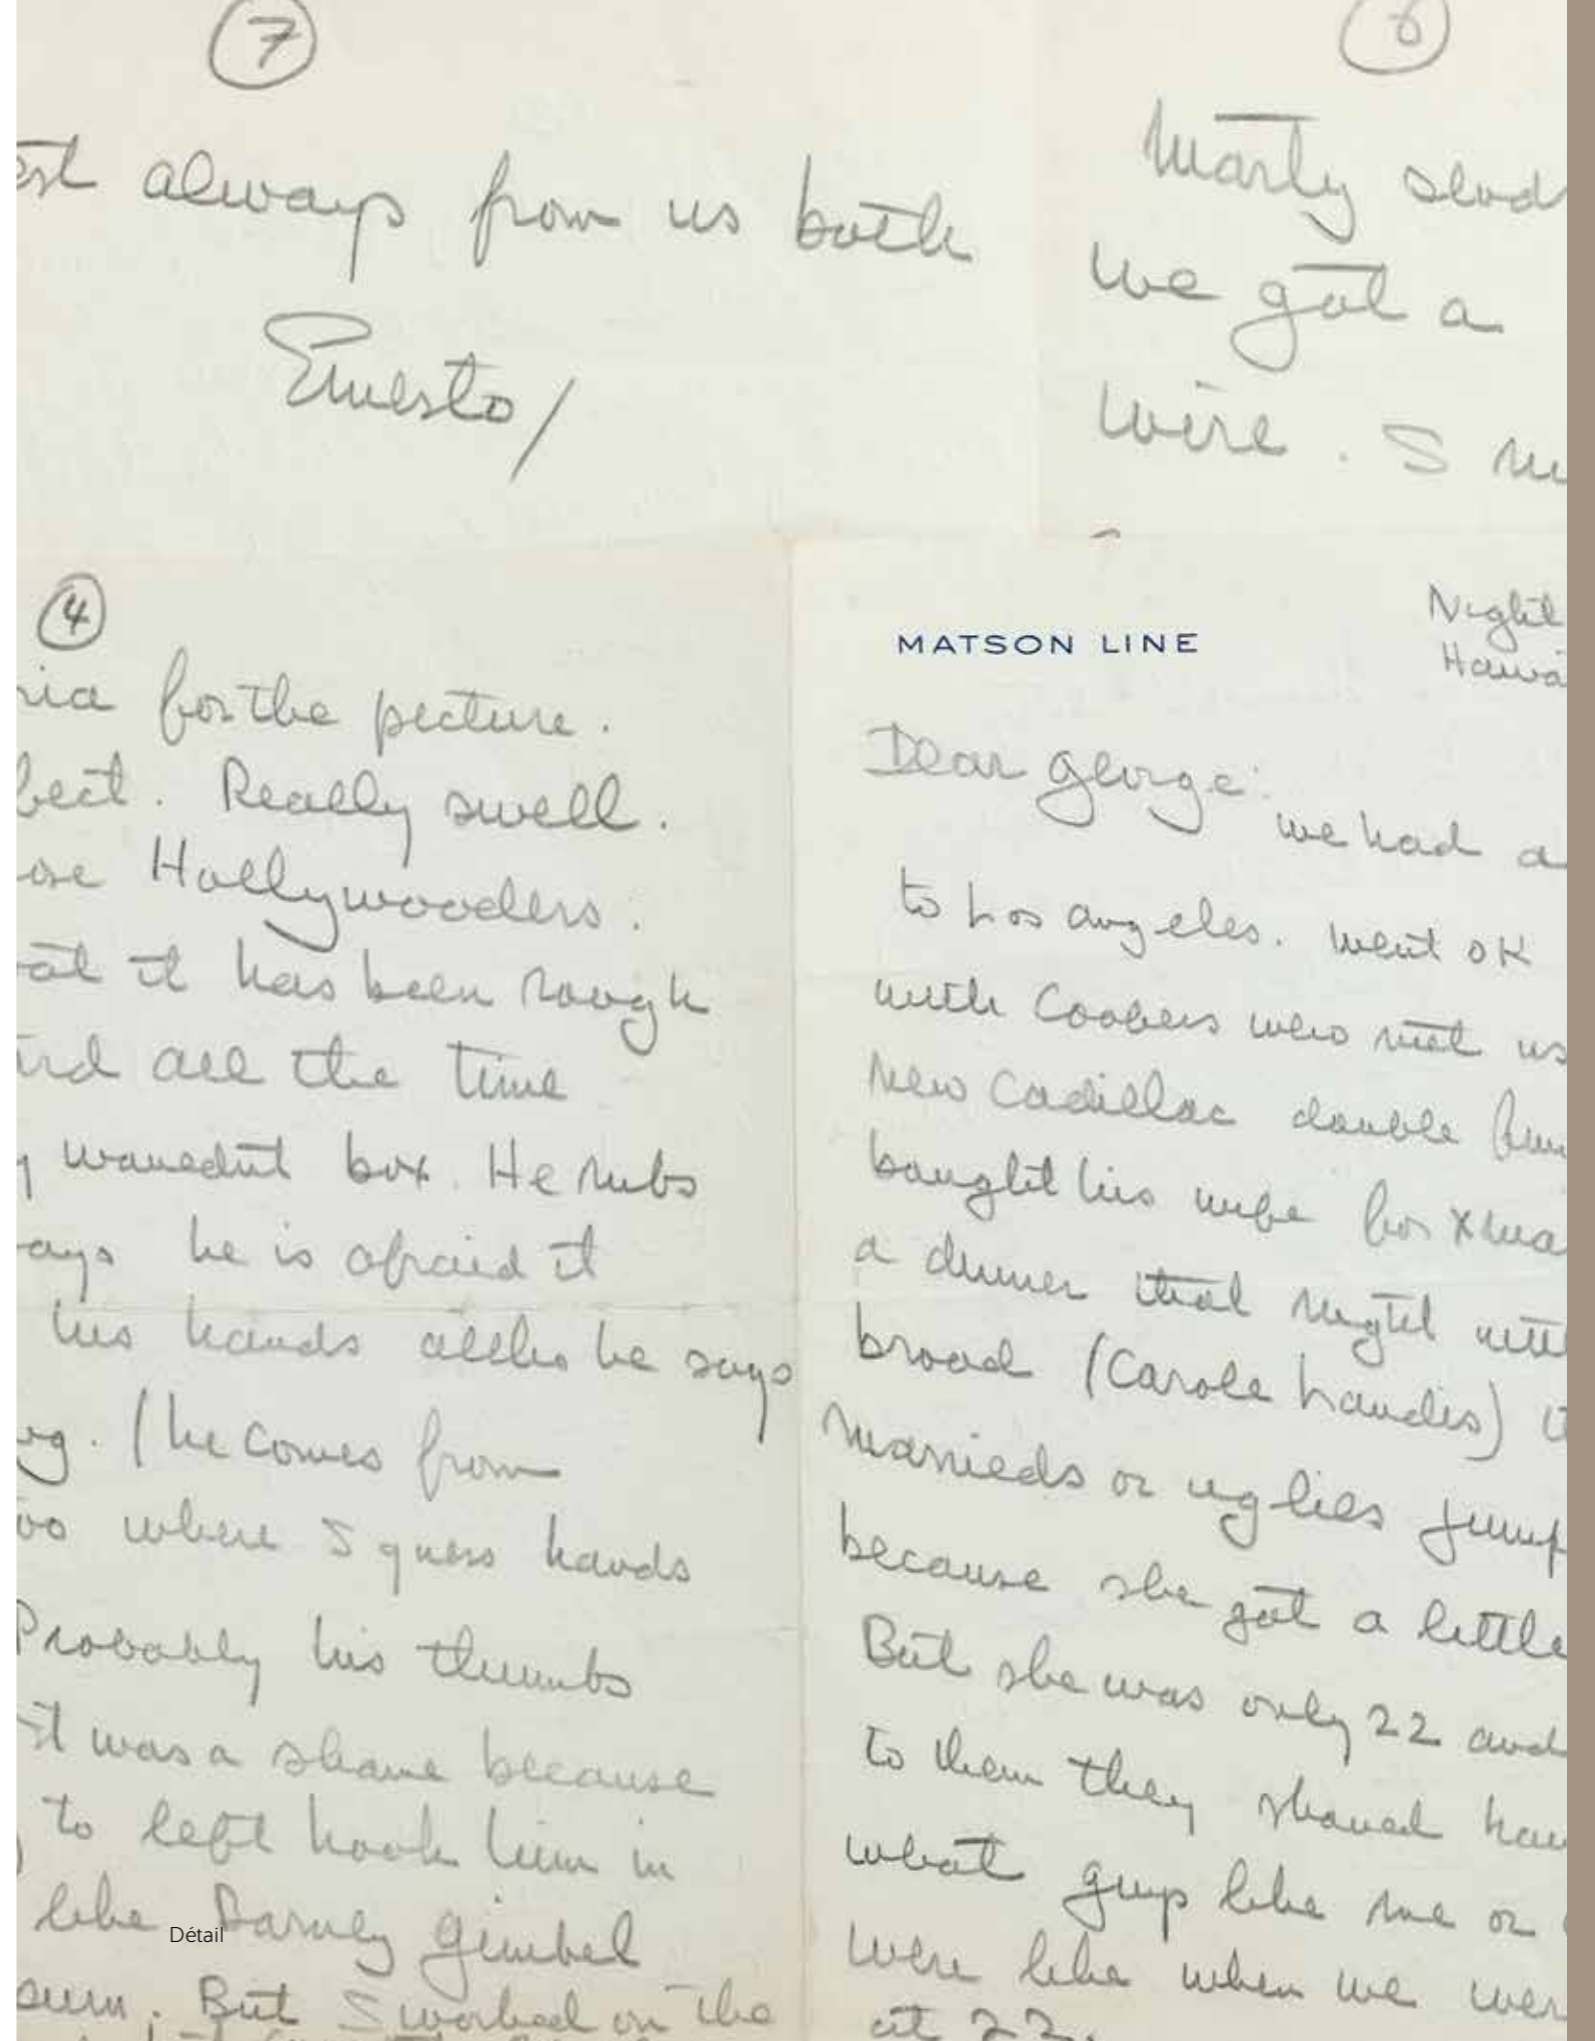 7
always from us both
Ernesto/
6
Marty
we got a
wire. I
4
for the picture.
Really swell.
Hollywooders.
it has been rough
all the time
box. He rubs
he is afraid it
his hands altho he says
(he comes from
where I guess hands
Probably his thumbs
it was a shame because
to left hook him in
like Barney Gimbel
But I worked on the
Détail
MATSON LINE
Night
Dear George:
we had a
to Los Angeles. Went OK
with Coopers who met us
new Cadillac double
bought his wife for
a dinner that night
broad (Carole Landis)
marrieds or uglies
because she got a little
But she was only 22 and
to them they should
what guys like me or
were like when we
at 22.